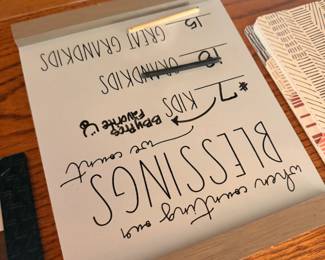 when counting our
BLESSINGS
we count
#7 KIDS
Favorite
18 GRANDKIDS
15 GREAT GRANDKIDS